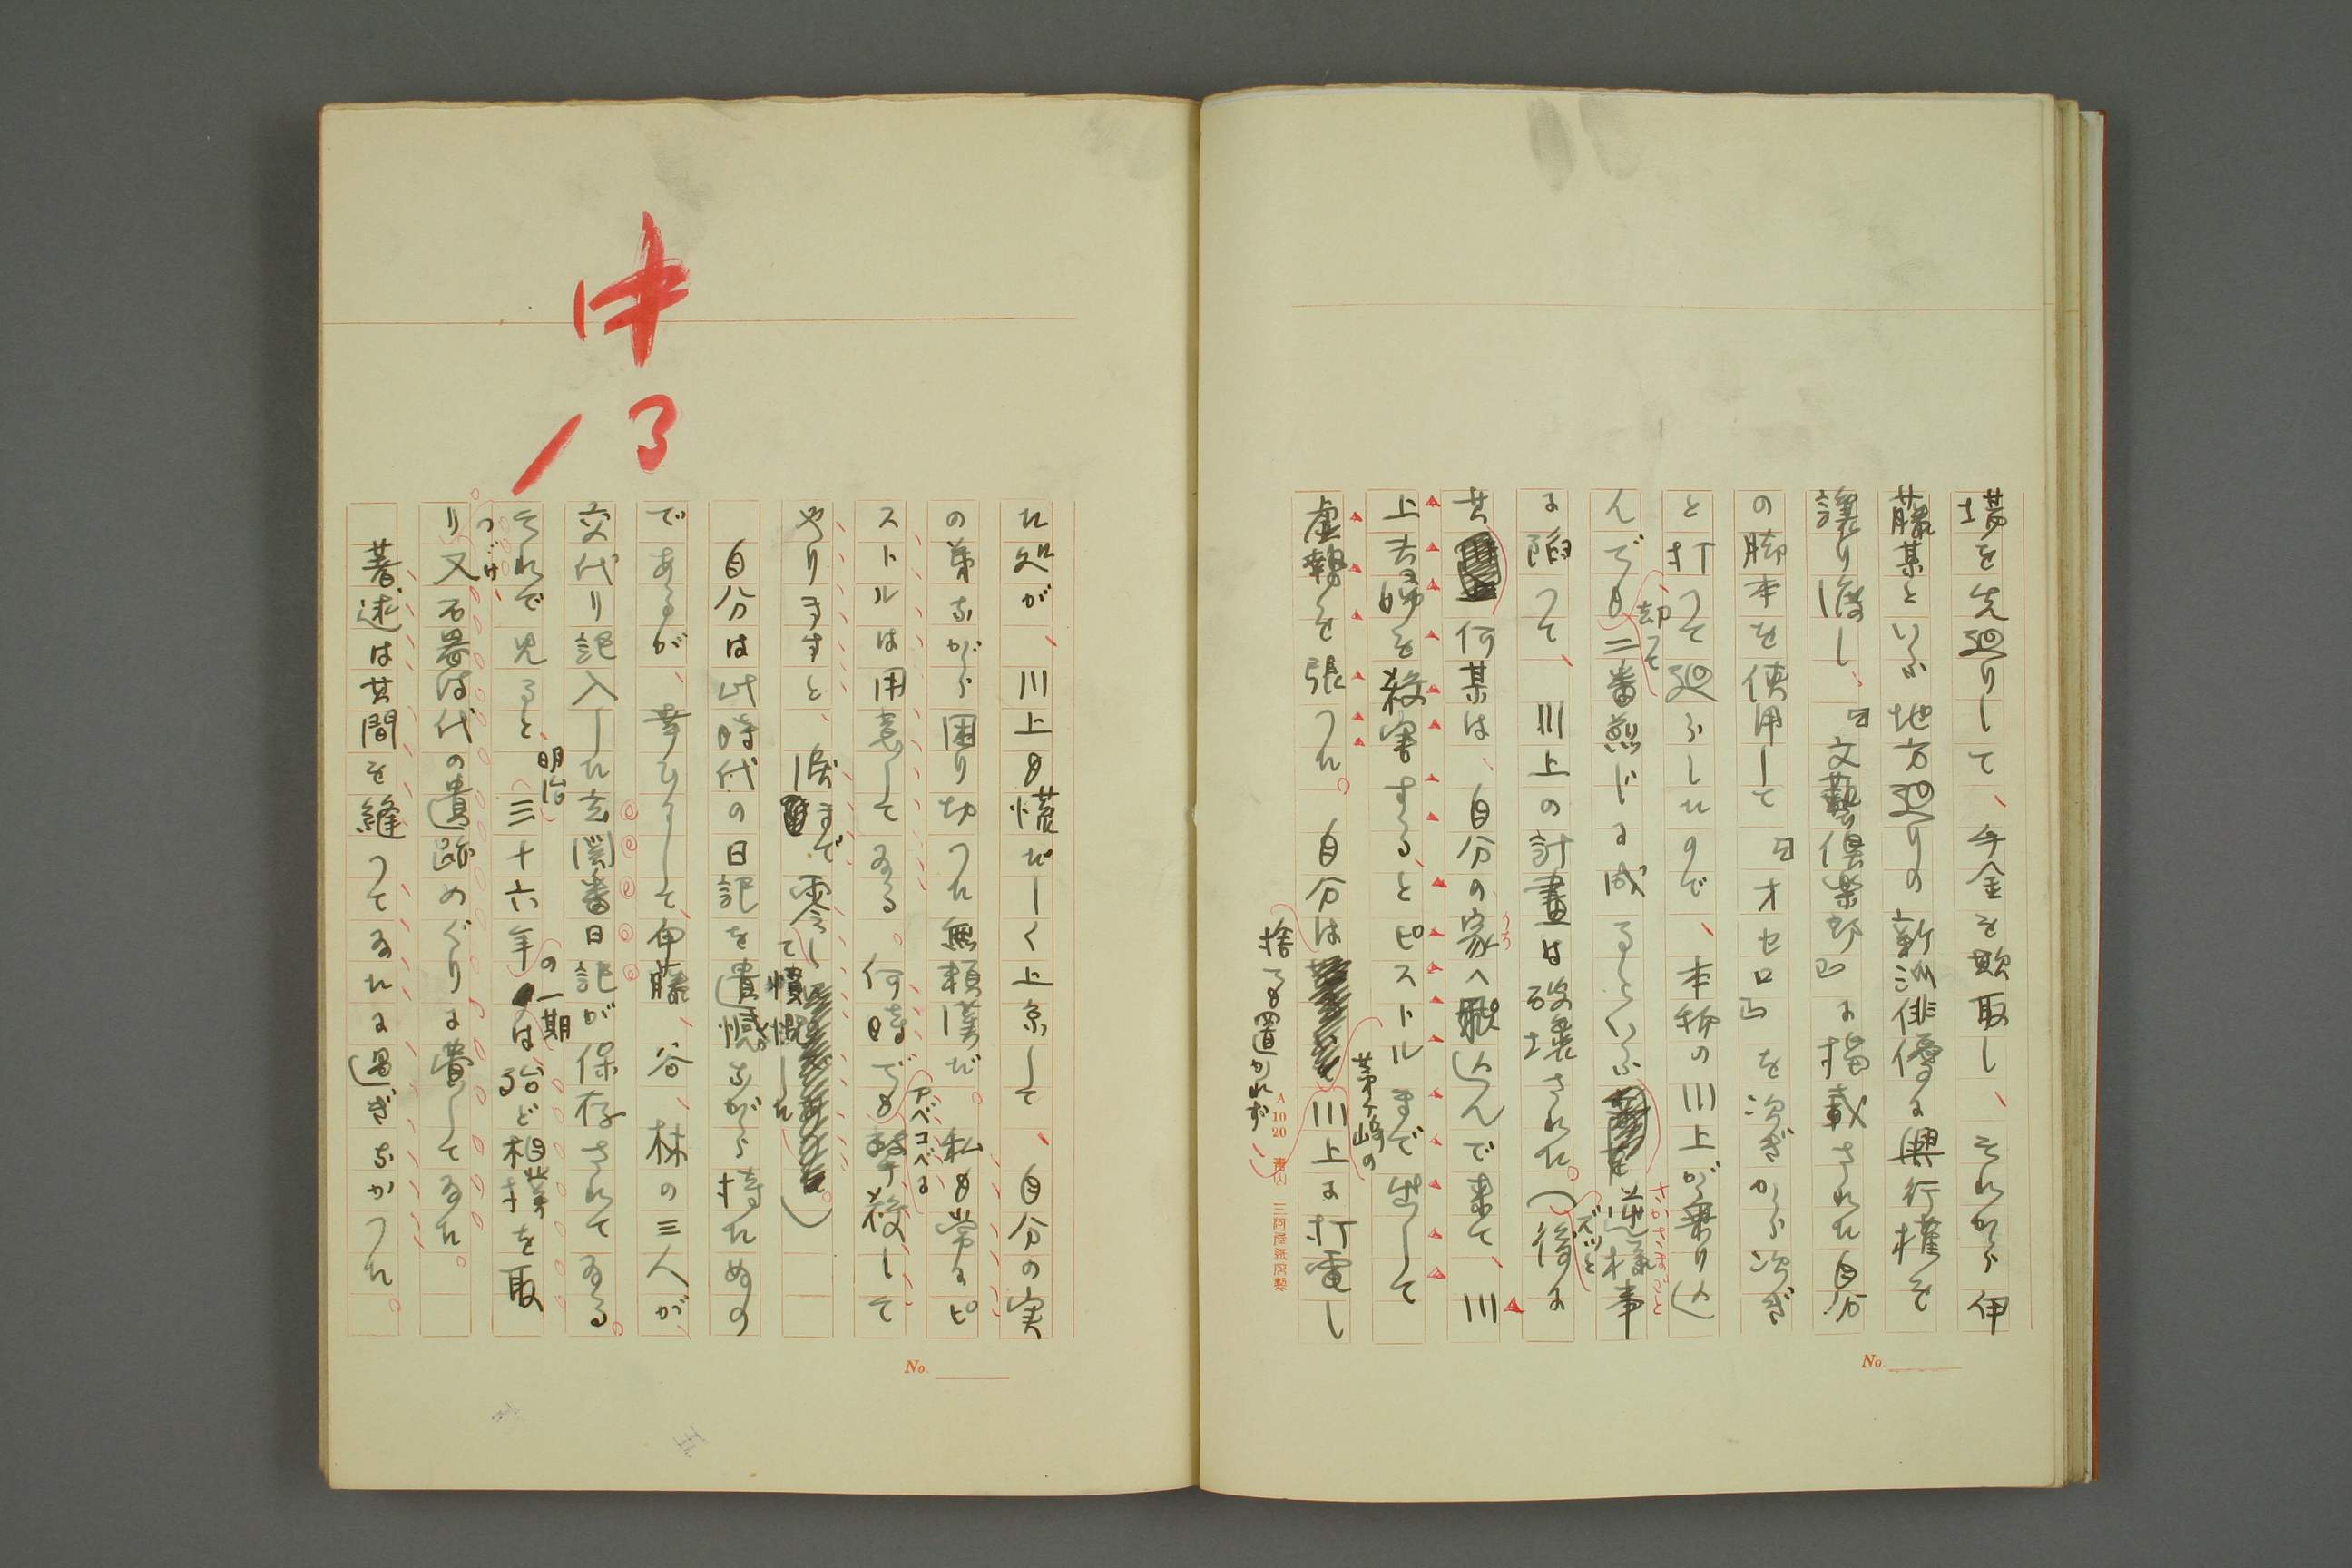 場を先廻りして、手金を欺取し、それから伊
藤某といふ地方廻りの新派俳優に興行権を
譲り渡し、『文藝倶楽部』に掲載された自分
の脚本を使用して『オセロ』を次ぎから次ぎ
と打つて廻ふしたので、本物の川上が乗り込
んでも却つて二番煎じに成るといふ逆様事
さかさまごと
に陥つて、川上の計畫は破壊された。(後に
ズツと
其何某は、自分の家へ駈込んで来て、川
うち
上夫婦を殺害するとピストルまで出して
虚勢を張つた。自分は捨てゝ置かれず、茅ヶ崎の川上に打電し
A 10 20
No.
た処が、川上も慌だしく上京して、自分の実
の弟ながら困り切つた無頼漢だ。私も常にピ
ストルは用意してゐる。何時でもアベコベに撃ち殺して
やりますと、涙まで零して憤慨した)
自分は此時代の日記を遺憾ながら持たぬの
であるが、幸ひにして、伊藤、谷、林の三人が、
交代り記入した玄関番日記が保存されてゐる。
それで見ると、明治三十六年の一期は殆ど相撲を取
つゞけ、
り又石器時代の遺跡めぐりに費してゐた。
著述は其間を縫つてゐたに過ぎなかつた。
No.
中
13